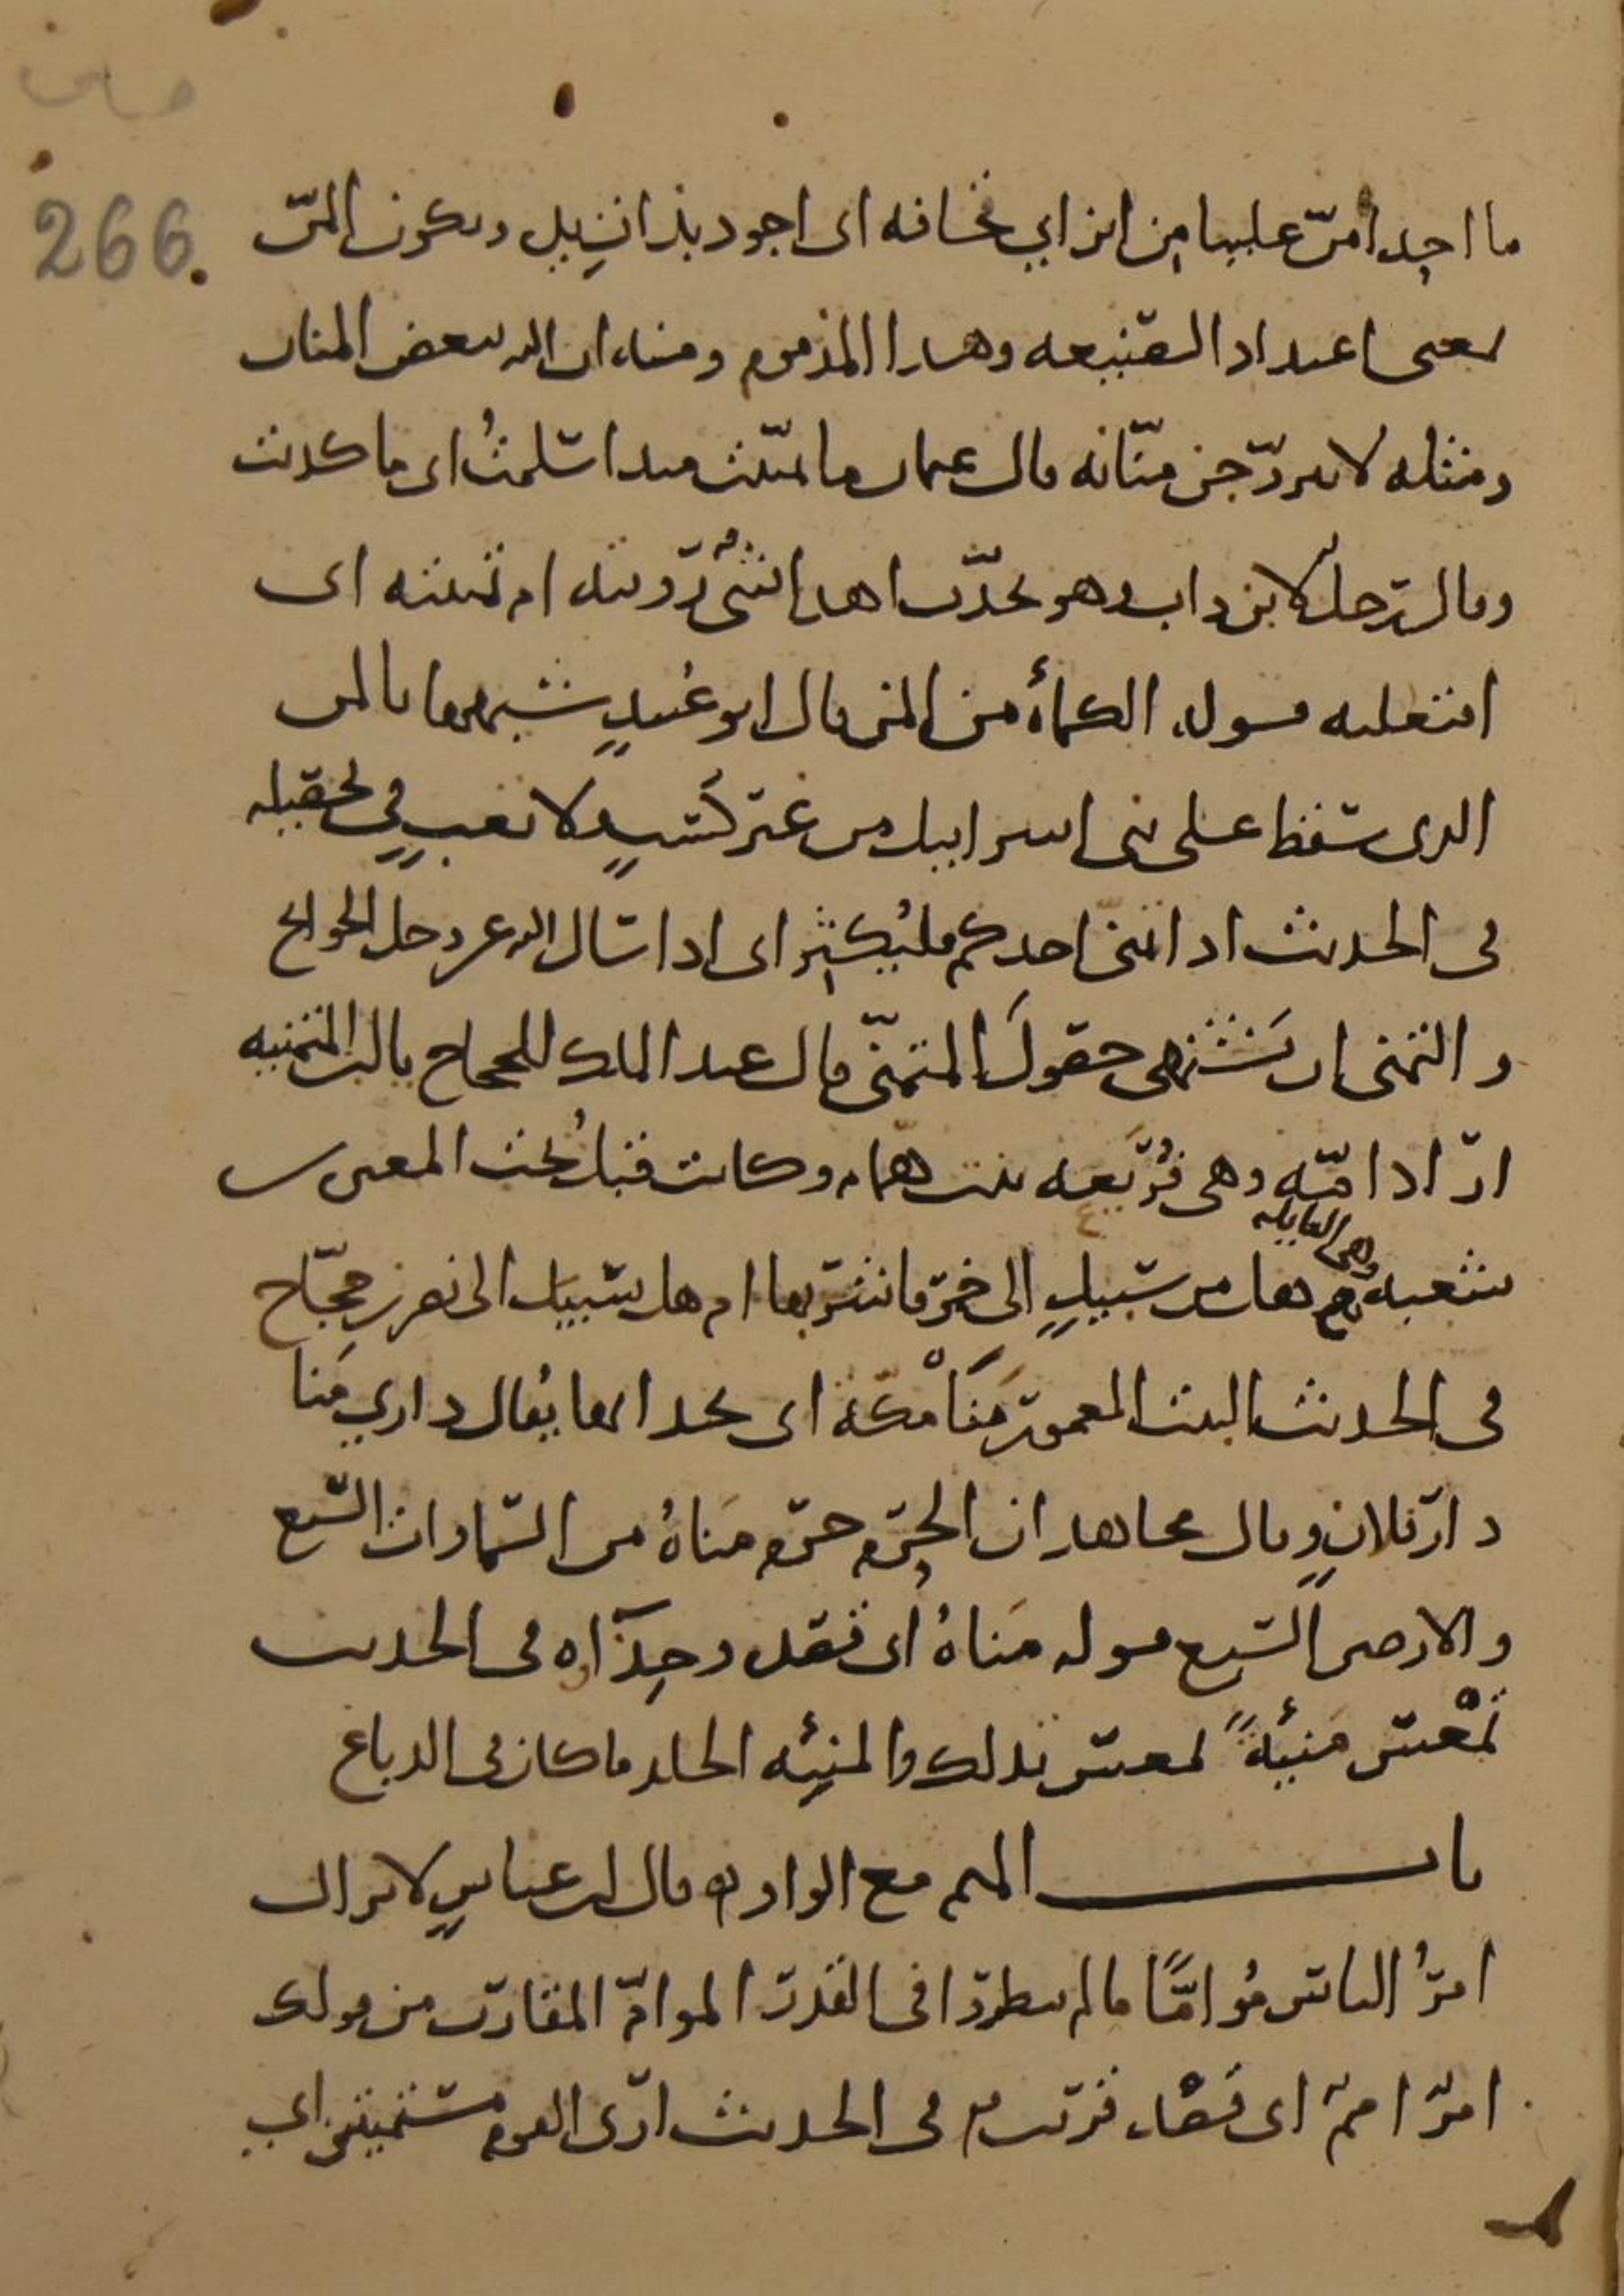 266.
ما احد امنّ علينا من ابن ابي قحافه اى اجود بذات يد ويكون المنّ
بمعنى اعتداد الصنيعه وهذا المذموم ومنه ان الله يبغض المنان
ومثله لا تتزوّجن منّانه قال عثمان ما تمنّيت منذ اسلمتُ اى ما كذبت
وقال رجل لابن داب وهو يحدّث اهذا شىءٌ رّويته ام تمنيته اى
افتعلته قوله الكمأة من المن قال ابو عُبيدٍ شبهها بالمن
الذى سقط على بنى اسرائيل من غير كسبٍ ولا تعبٍ في تحصيله
فى الحديث اذا تمنى احدكم فليُكثِر اى اذا سال الله عز وجل الحوائج
والتمنى ان يَشتهى حصولَ المتمنّى قال عبد الملك للحجاج يا ابن المتمنيه
ارّاد امّه وهى فُرَيعه بنت همام وكانت قبلُ تحت المغيره بن
شعبه وهى القايله هل من سبيلٍ الى خمرٍ فاشربها ام هل سبيل الى نصر بن حجّاج
فى الحديث البيت المعمور مَنَا مكّه اى بحذائها يُقال داري مَنا
دار فلانٍ وقال مجاهد ان الحرم حرمٌ مَناهُ من السّماوات السّبع
والارضين السّبع قوله مَناهُ اى قصده وحِذآاه فى الحديث
تمْعس مَنيئةً تمعس تدلك والمنيئه الجلد ما كان فى الدباغ
باب الميم مع الواو قال ابن عباسٍ لا يزال
امرُ الناس مُوامًّا ما لم ينظروا فى القدر الموامّ المقارب من قولك
امرٌ اممٌ اى قصدٌ قريب فى الحديث ارى القوم مستميتين اى